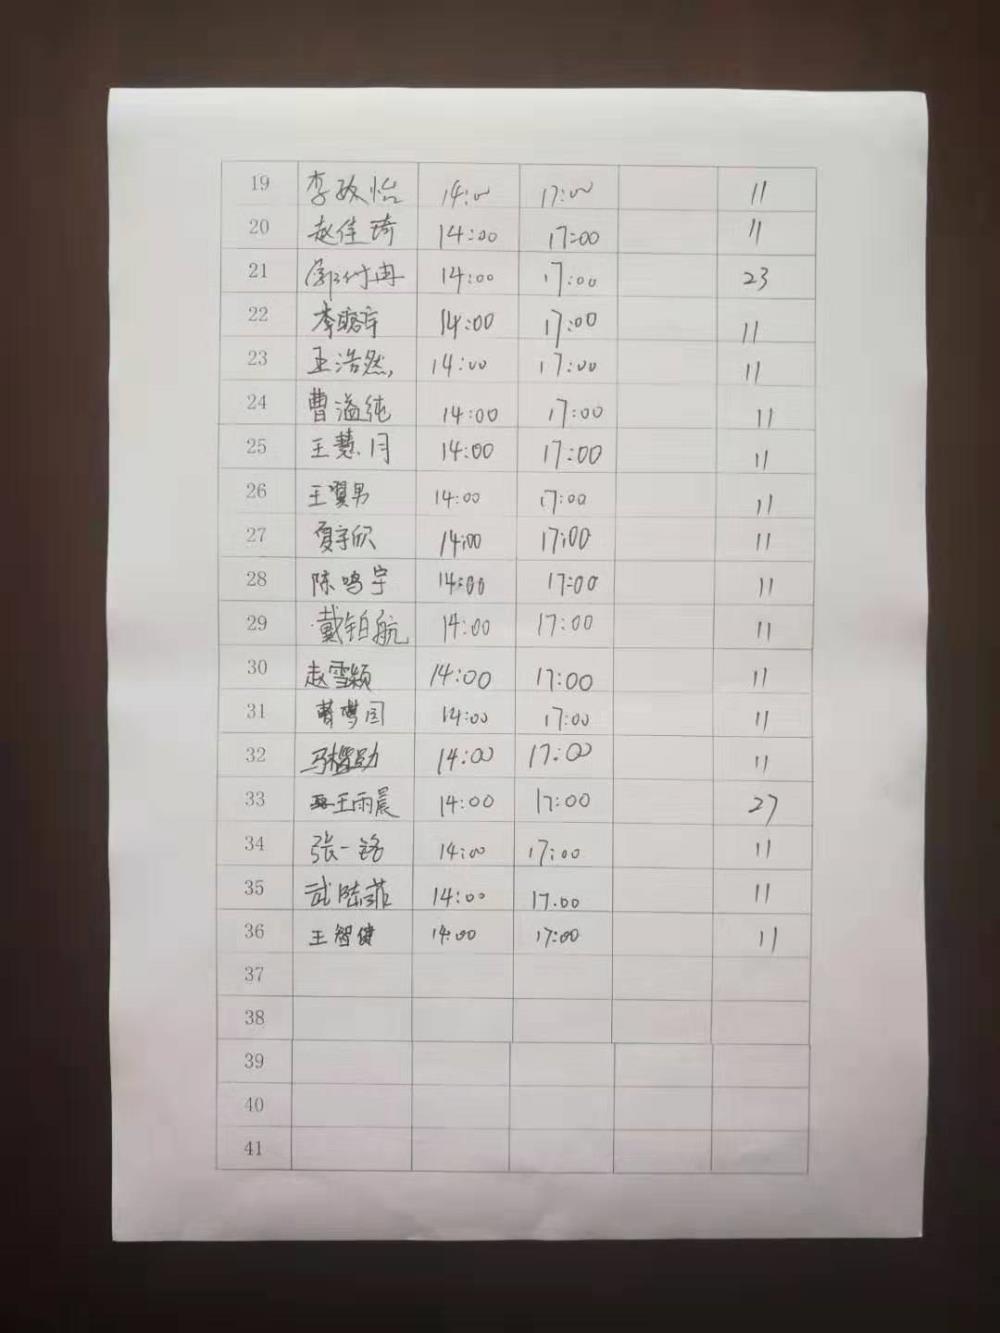 19 李政怡 14:00 17:00 11
20 赵佳琦 14:00 17:00 11
21 14:00 17:00 23
22 14:00 17:00 11
23 王浩然, 14:00 17:00 11
24 曹溢纯 14:00 17:00 11
25 王慧月 14:00 17:00 11
26 王翼男 14:00 17:00 11
27 夏宇欣 14:00 17:00 11
28 陈鸣宇 14:00 17:00 11
29 戴铂航 14:00 17:00 11
30 赵雪颖 14:00 17:00 11
31 14:00 17:00 11
32 14:00 17:00 11
33 王雨晨 14:00 17:00 27
34 张一铭 14:00 17:00 11
35 武陆菲 14:00 17.00 11
36 王智健 14:00 17:00 11
37
38
39
40
41